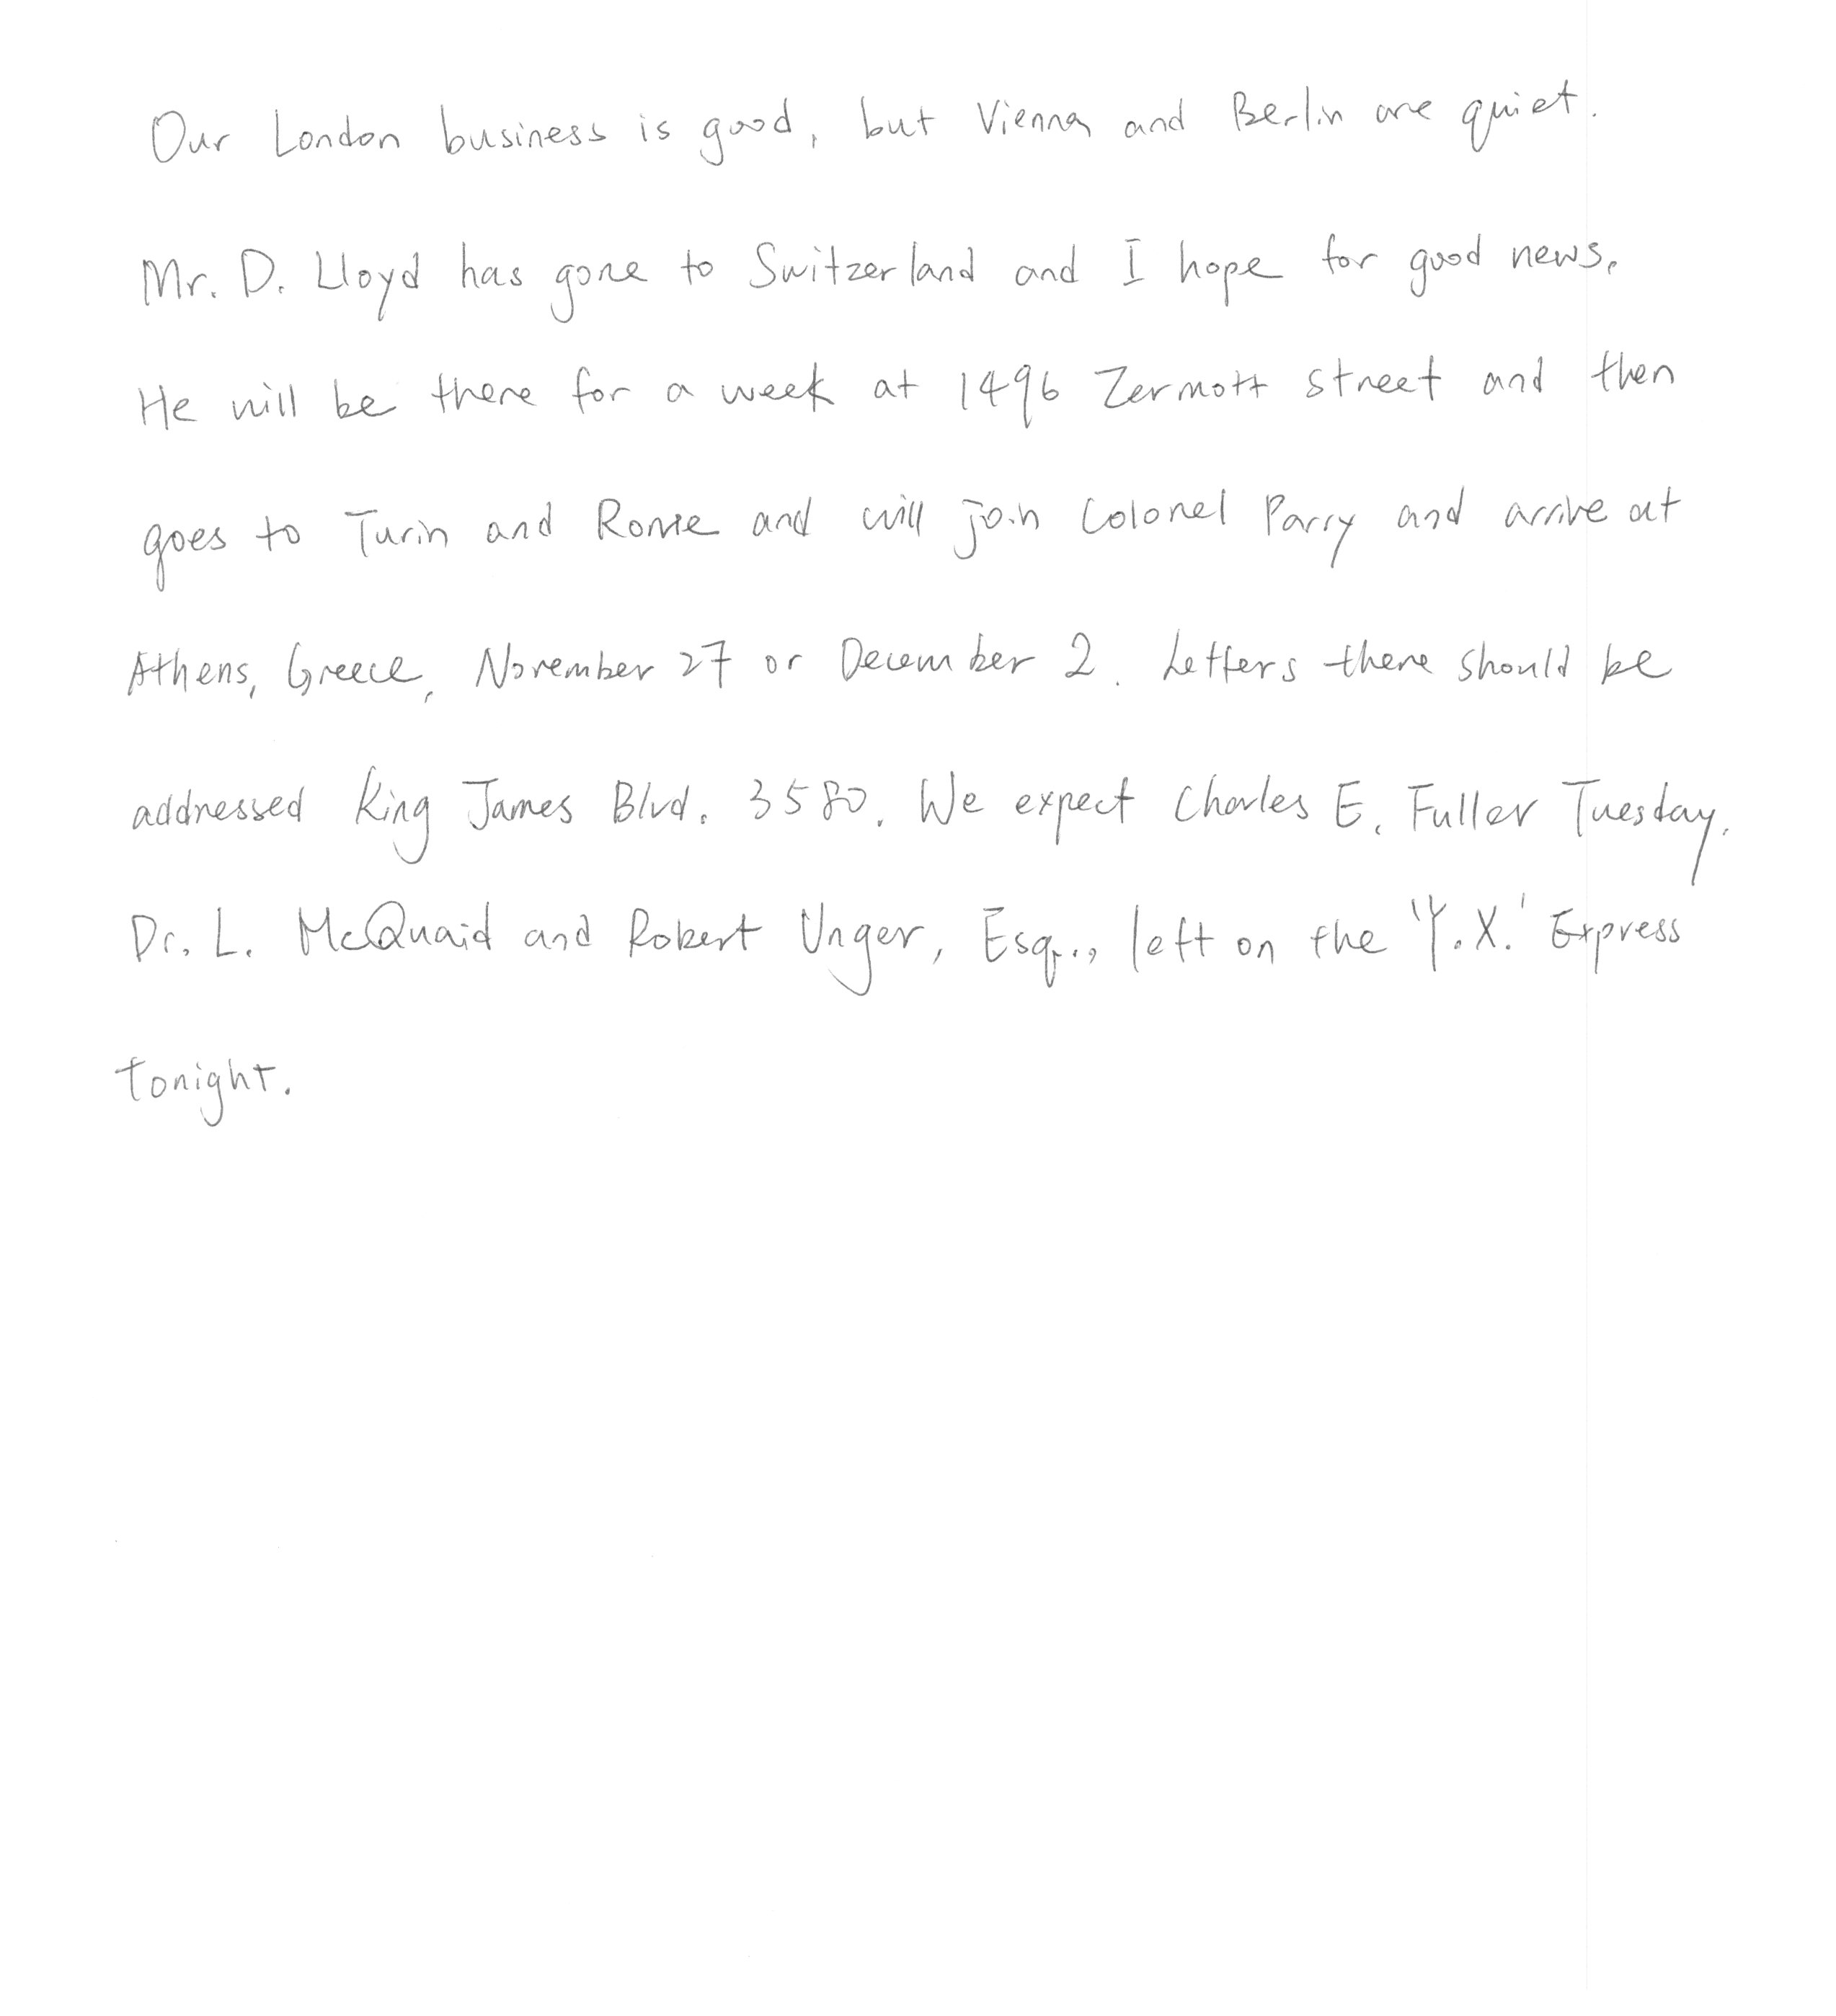 Our London business is good, but Vienna and Berlin are quiet.
Mr. D. Lloyd has gone to Switzerland and I hope for good news.
He will be there for a week at 1496 Zermott street and then
goes to Turin and Rome and will join Colonel Parry and arrive at
Athens, Greece, November 27 or December 2. Letters there should be
addressed King James Blvd. 3580. We expect Charles E. Fuller Tuesday.
Dr. L. McQuaid and Robert Unger, Esq., left on the 'Y.X.' Express
tonight.